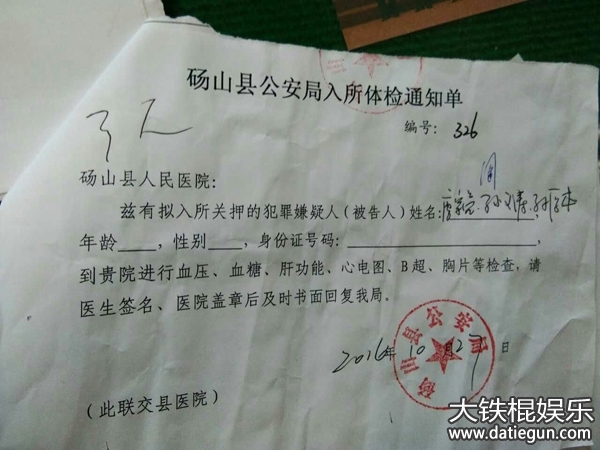 砀山县公安局入所体检通知单
编号: 326
砀山县人民医院:
兹有拟入所关押的犯罪嫌疑人(被告人)姓名:
年龄____,性别____,身份证号码:____________,
到贵院进行血压、血糖、肝功能、心电图、B超、胸片等检查,请
医生签名、医院盖章后及时书面回复我局。
砀山县公安局
2016年10月27日
(此联交县医院)
大铁棍娱乐
www.datiegun.com